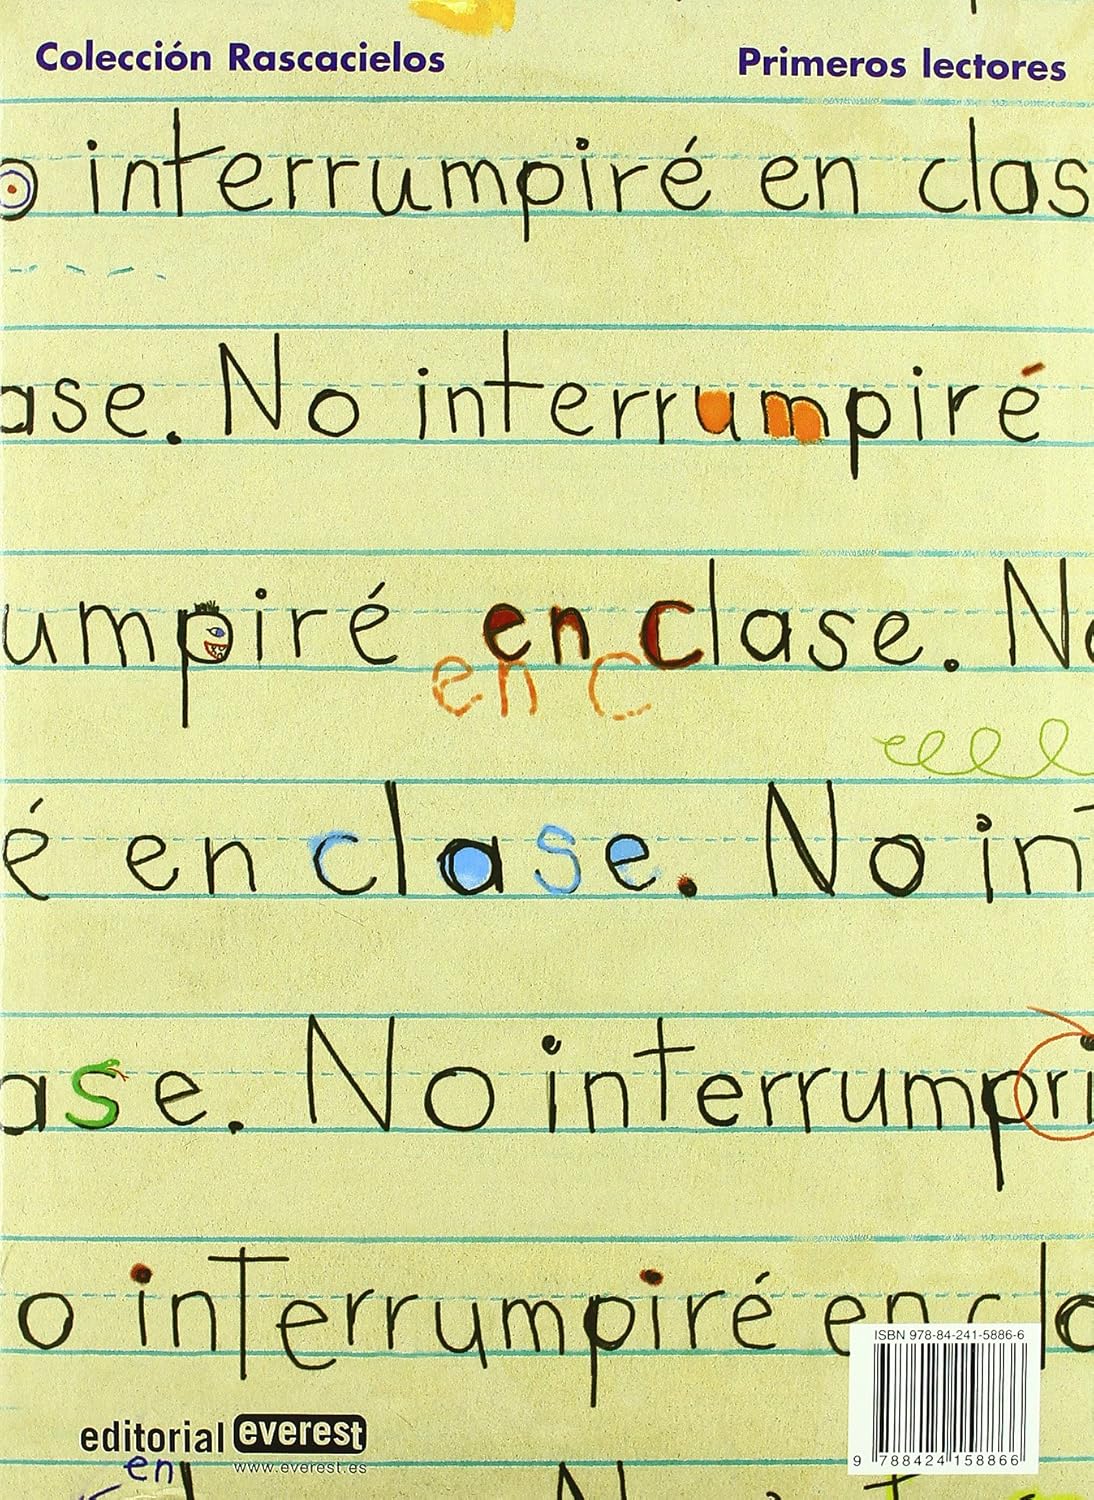 Colección Rascacielos
Primeros lectores
o interrumpiré en clas
ase. No interrumpiré
umpiré en clase. No
en c
é en clase. No int
ase. No interrumpri
o interrumpiré en cla
ISBN 978-84-241-5886-6
9 788424 158866
editorial everest
www.everest.es
en